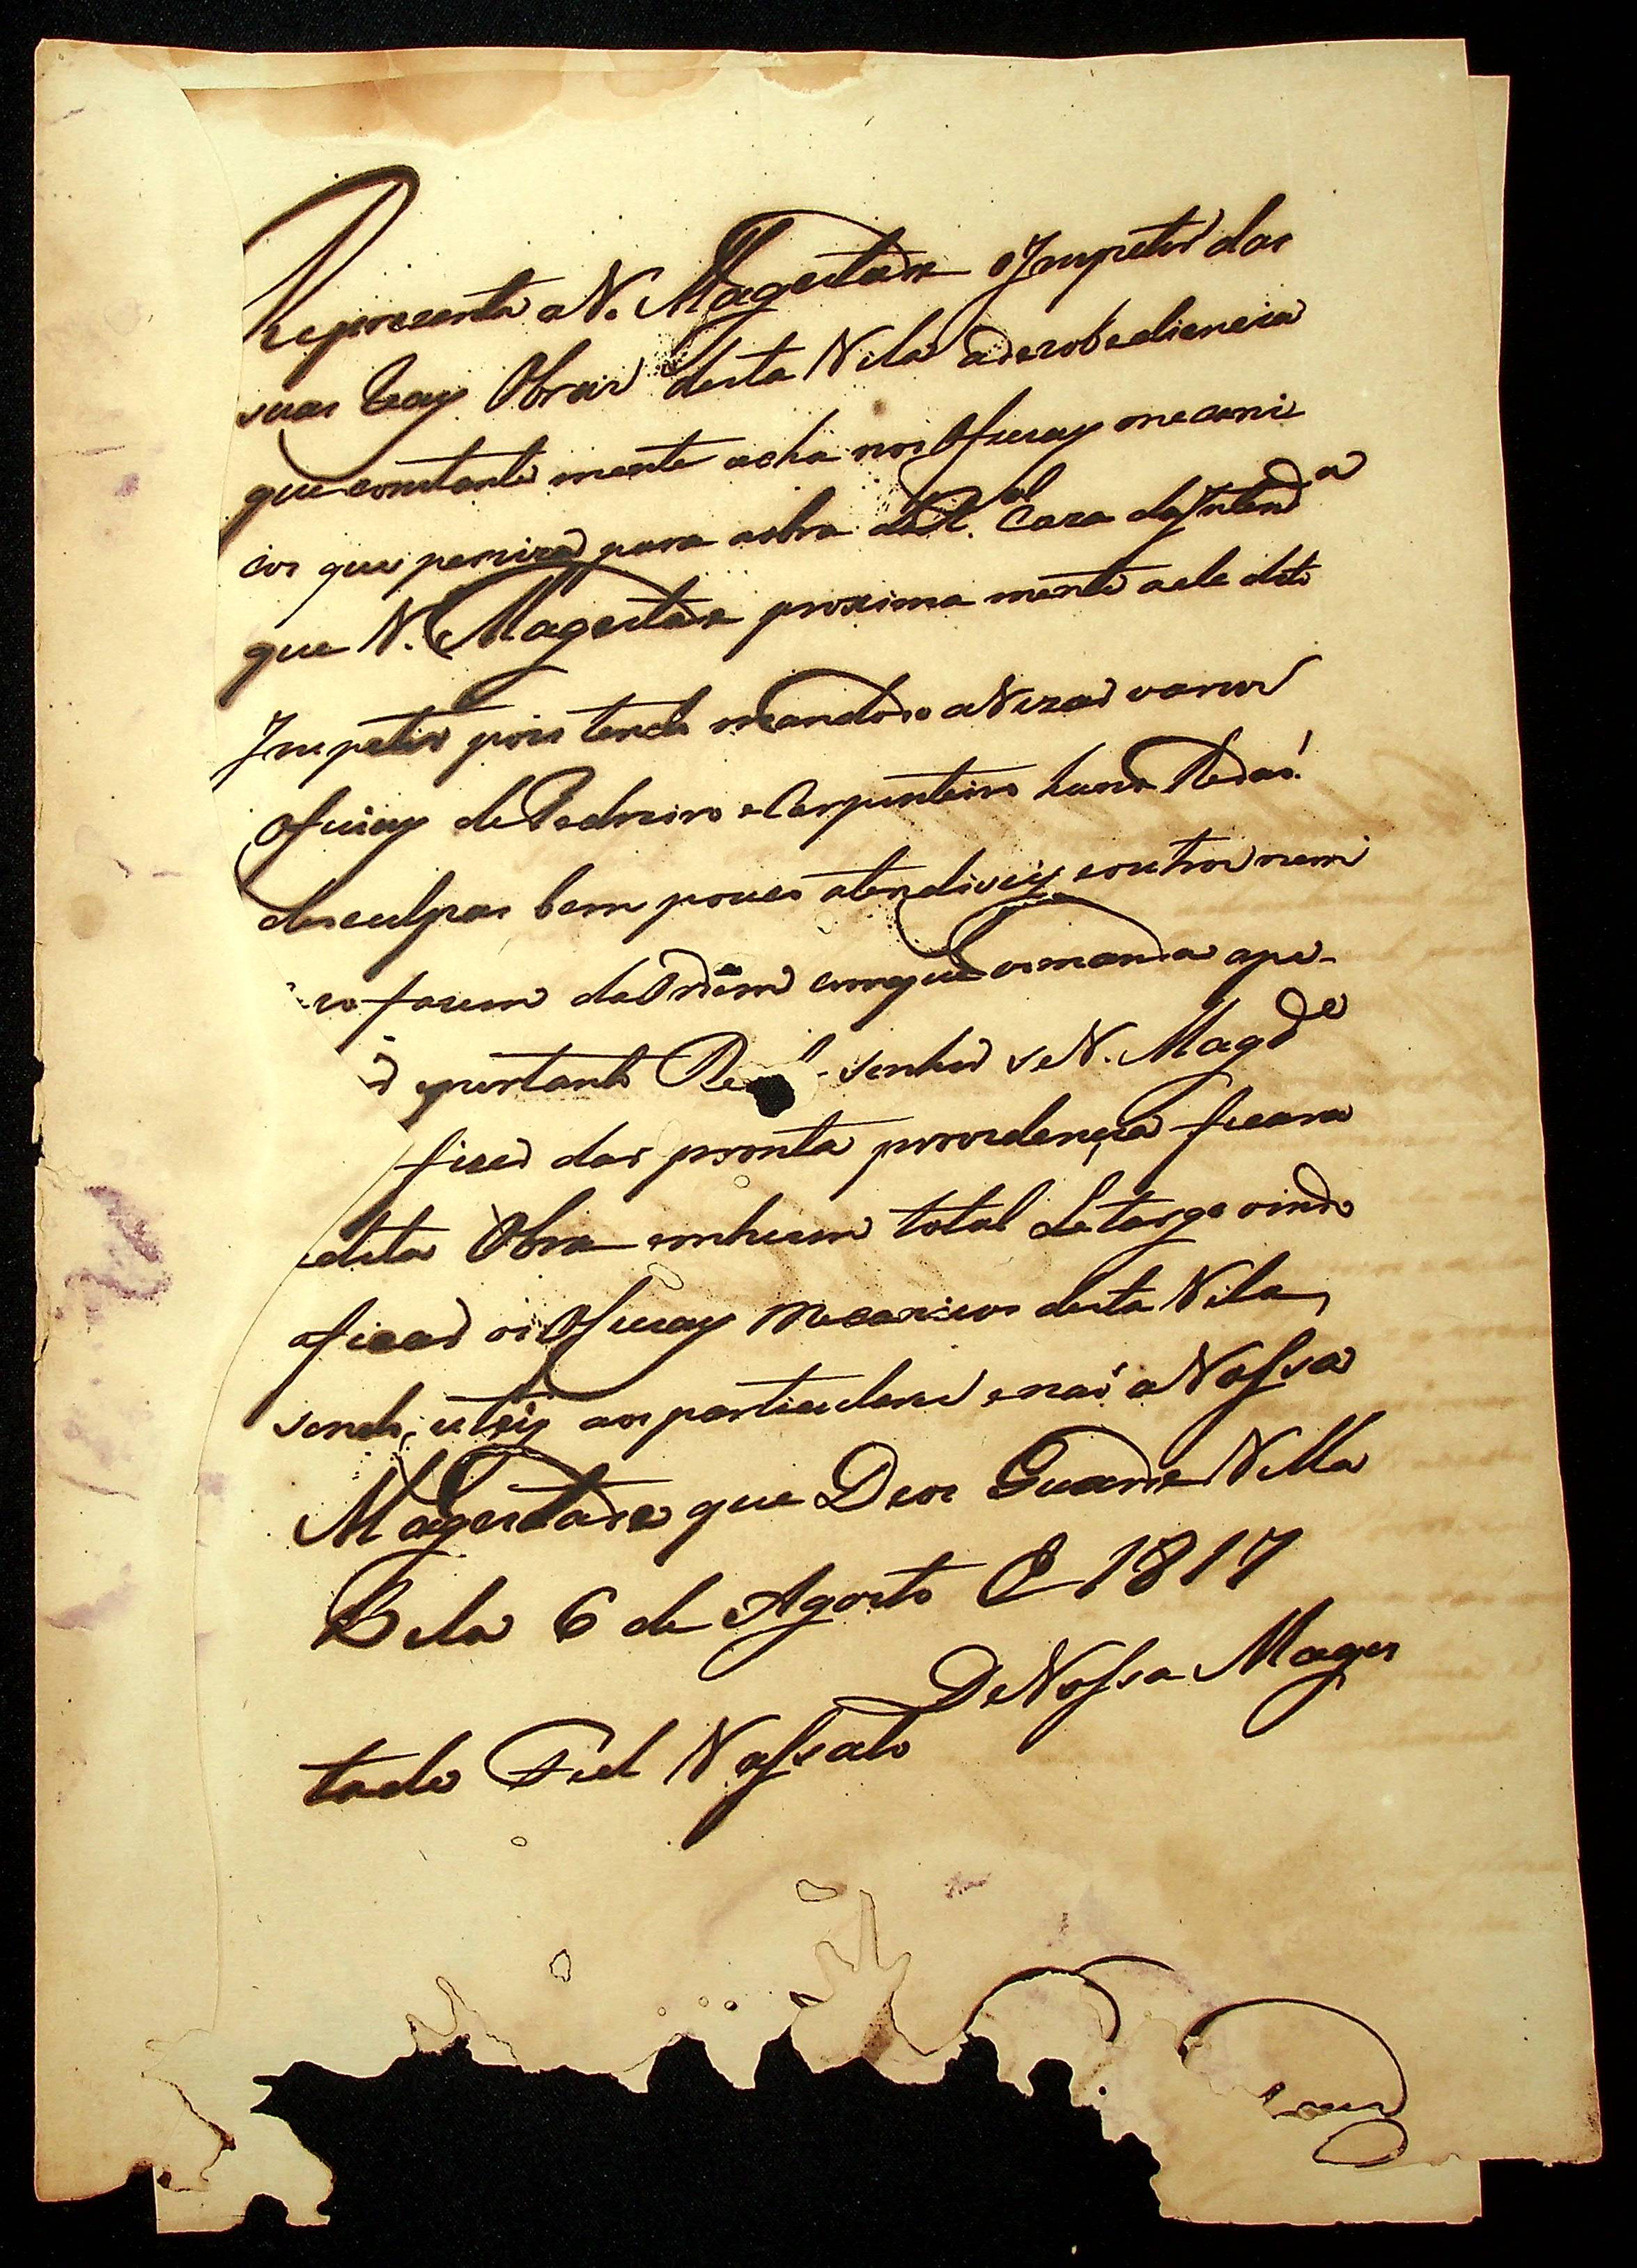 Reprezenta a V. Magestade o Inspetor das
suas Reays Obras desta Vila a dezobediencia
que constante mente acha nos Oficiays mecani
cos que perciza para a obra da Rl. Caza da Intenda
que V. Magestade proxima mente a ele dito
Inspetor pois tendo mandado avizar varios
Oficiays de Pedreiro e Carpinteiro huns dão
desculpas bem pouco atendiveis e outros nem
cazo fazem da Ordem com que os manda ape-
portanto Real Senhor se V. Magde
fizer dar pronta providençia ficara
a dita Obra em hum total Letargo vindo
a ficar os Oficiays Mecanicos desta Vila
sendo uteis aos particulares e não a Vossa
Magestade que Deos Guarde Villa
Bela 6 de Agosto de 1817
De Vossa Mages
tade Fiel Vassalo